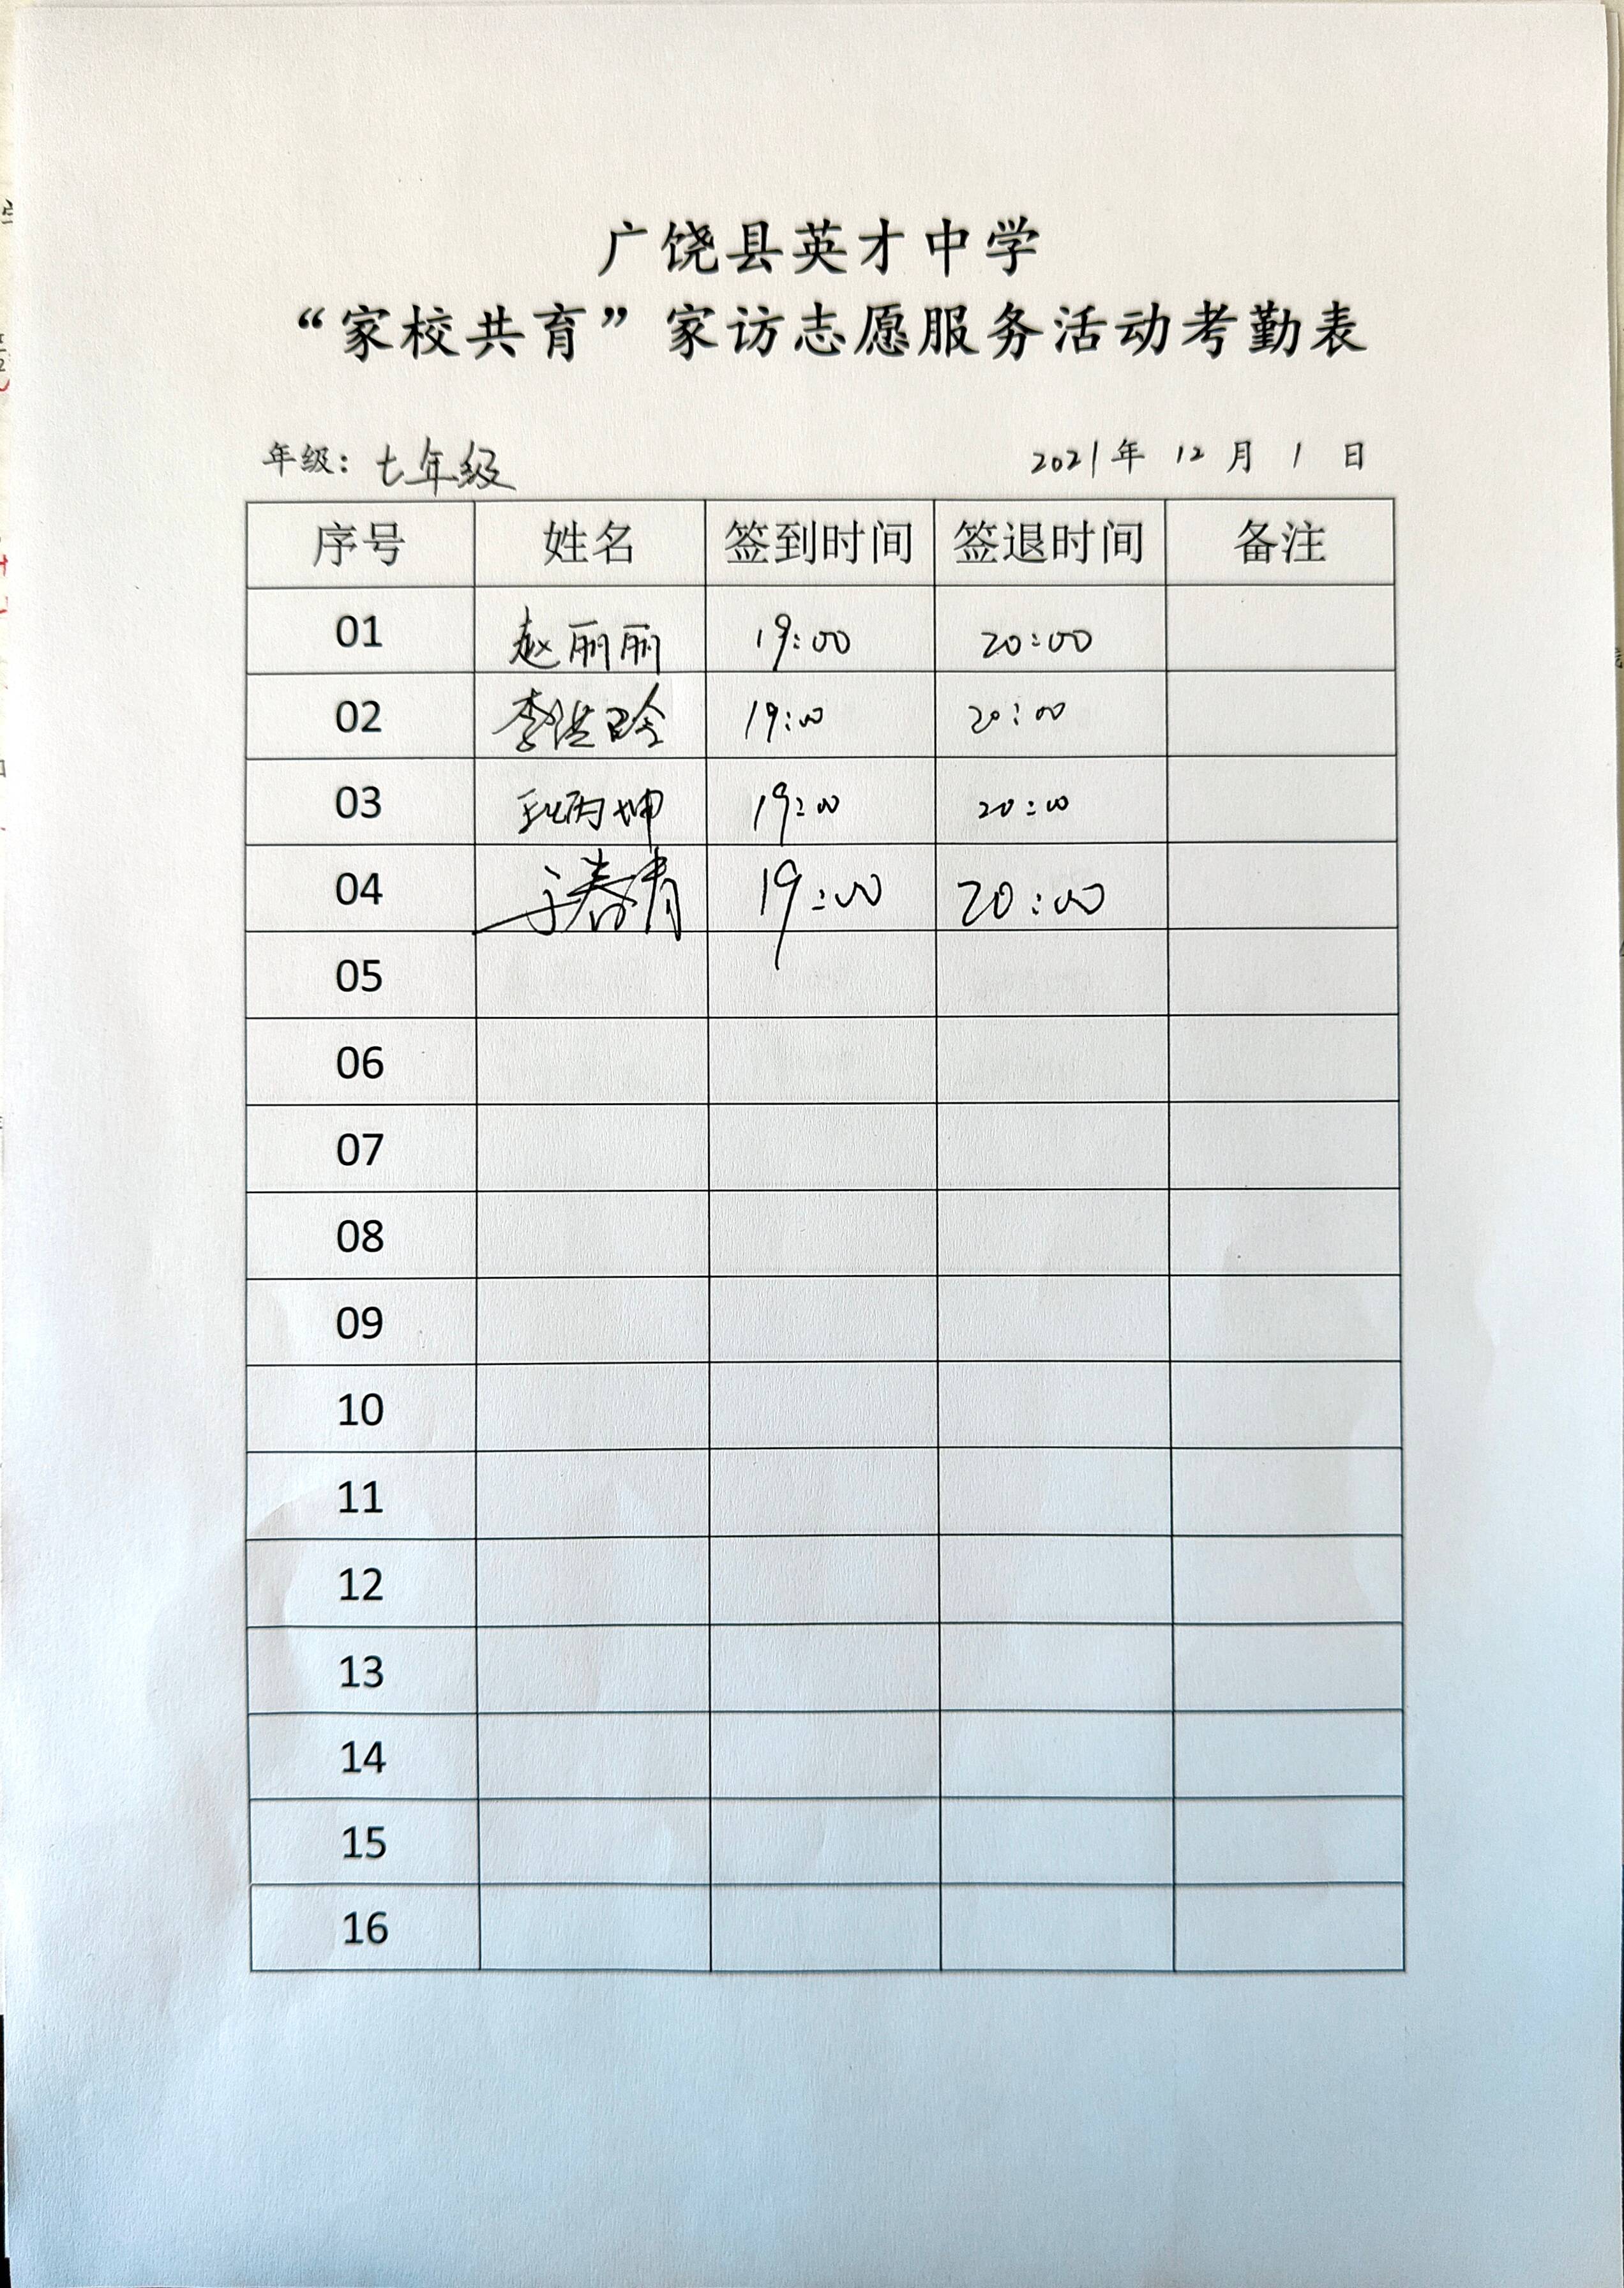 广饶县英才中学
“家校共育”家访志愿服务活动考勤表
年级：七年级 2021年 12 月 1 日
序号 姓名 签到时间 签退时间 备注
01 赵丽丽 19:00 20:00
02 19:00 20:00
03 19:00 20:00
04 于春青 19:00 20:00
05
06
07
08
09
10
11
12
13
14
15
16